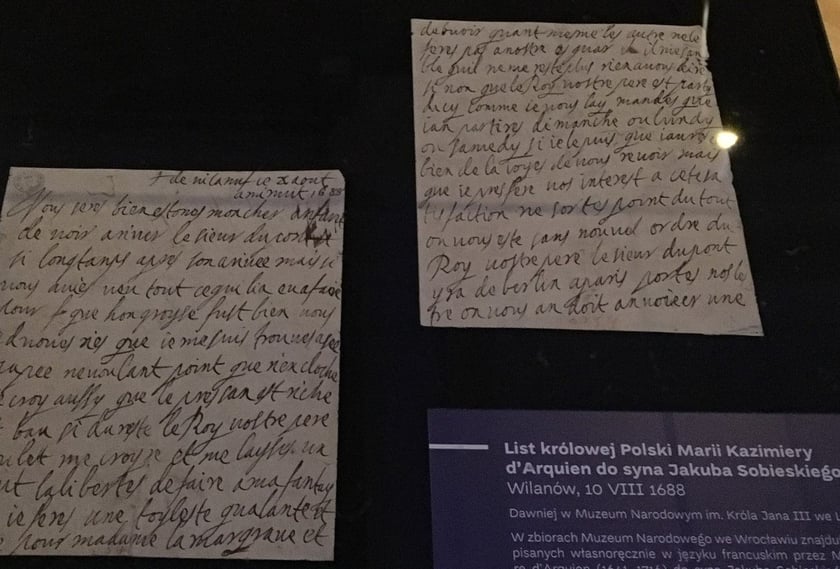 + de vilanuf ce x aout
a minuit 1688
Vous seres bien estones mon cher enfant
de voir ariver le sieur du
si longtamps apres son arivée mais si
vous avies veu tout ce qui lia eu a faire
pour que fust bien vous
que ie me suis trouves
ne voulant point que rien cloche
croy aussy que le presan est riche
bau si du reste le Roy vostre pere
me croyre et me laysses
la libertes de faire a ma fantay
ie feres une toyleste gualante et
pour madame la margrave et
debvoir quant mesme les autre ne le
feres pas a nostre esguar il me san
ble quil ne me reste plus rien a vous dire
si non que le Roy vostre pere est party
dicy comme ie vous lay mandes que
ian partires dimanche ou lundy
ou samedy si ie le puis que iaures
bien de la ioyes de vous revoir mais
que ie prefere vos interest a cete sa
tisfaction ne sortes point du tout
ou vous este sans nouvel ordre du
Roy vostre pere le sieur dupont
yra de berlin a paris portes nos le
tre on vous an doit anvoieer une
List królowej Polski Marii Kazimiery
d'Arquien do syna Jakuba Sobieskiego
Wilanów, 10 VIII 1688
Dawniej w Muzeum Narodowym im. Króla Jana III we
W zbiorach Muzeum Narodowego we Wrocławiu znajdu
pisanych własnoręcznie w języku francuskim przez
d'Arquien